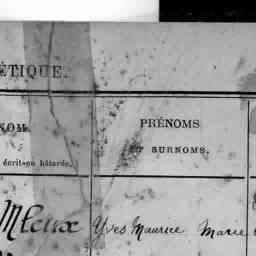 ÉTIQUE.
NOM
écrit en bâtarde.
PRÉNOMS
ET SURNOMS.
Yves Maurice Marie